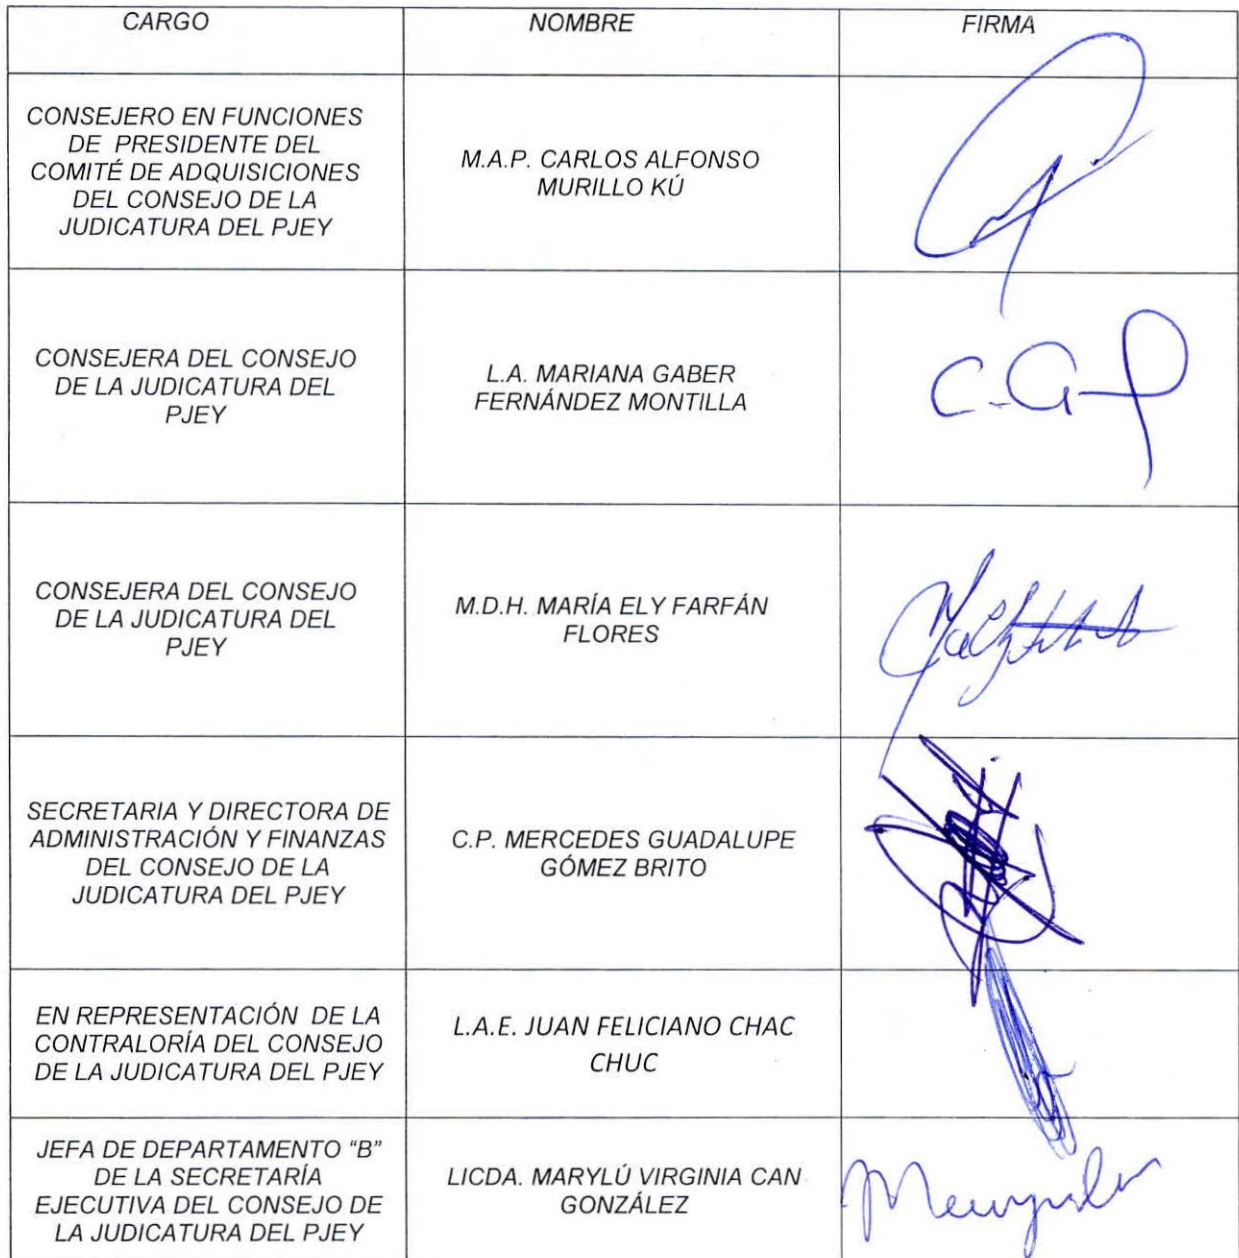 CARGO
NOMBRE
FIRMA
CONSEJERO EN FUNCIONES
DE PRESIDENTE DEL
COMITÉ DE ADQUISICIONES
DEL CONSEJO DE LA
JUDICATURA DEL PJEY
M.A.P. CARLOS ALFONSO
MURILLO KÚ
CONSEJERA DEL CONSEJO
DE LA JUDICATURA DEL
PJEY
L.A. MARIANA GABER
FERNÁNDEZ MONTILLA
CONSEJERA DEL CONSEJO
DE LA JUDICATURA DEL
PJEY
M.D.H. MARÍA ELY FARFÁN
FLORES
SECRETARIA Y DIRECTORA DE
ADMINISTRACIÓN Y FINANZAS
DEL CONSEJO DE LA
JUDICATURA DEL PJEY
C.P. MERCEDES GUADALUPE
GÓMEZ BRITO
EN REPRESENTACIÓN DE LA
CONTRALORÍA DEL CONSEJO
DE LA JUDICATURA DEL PJEY
L.A.E. JUAN FELICIANO CHAC
CHUC
JEFA DE DEPARTAMENTO “B”
DE LA SECRETARÍA
EJECUTIVA DEL CONSEJO DE
LA JUDICATURA DEL PJEY
LICDA. MARYLÚ VIRGINIA CAN
GONZÁLEZ